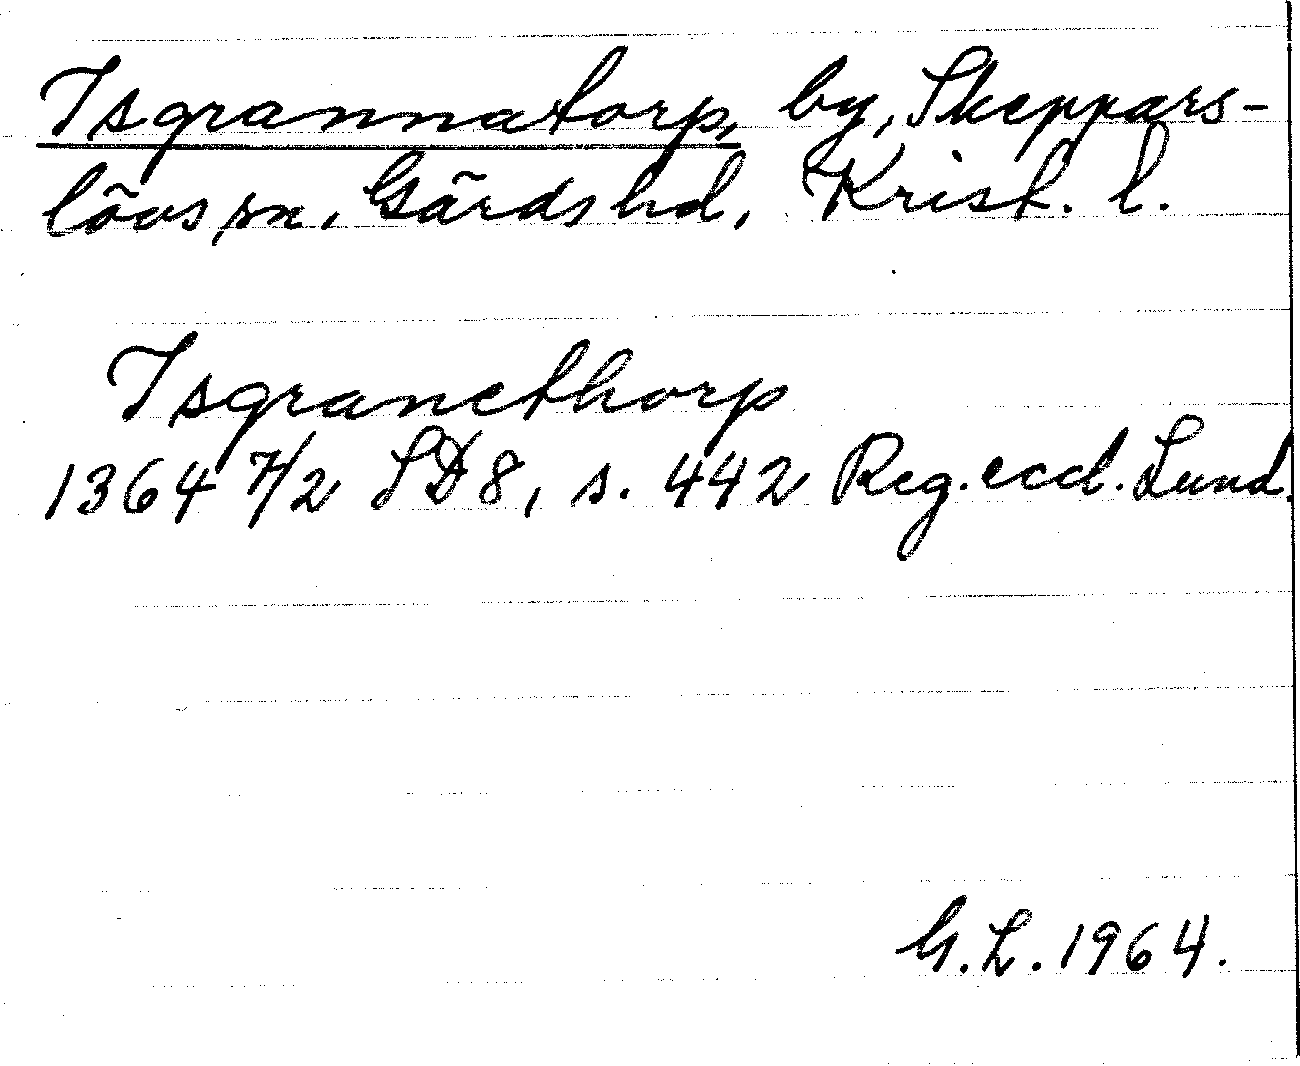 Isgrannatorp, by, Skeppars-
lövs sn, Gärds hd, Krist. l.
Isgranethorp
1364 7/2 SD8, s. 442 Reg. eccl. Lund.
G. L. 1964.